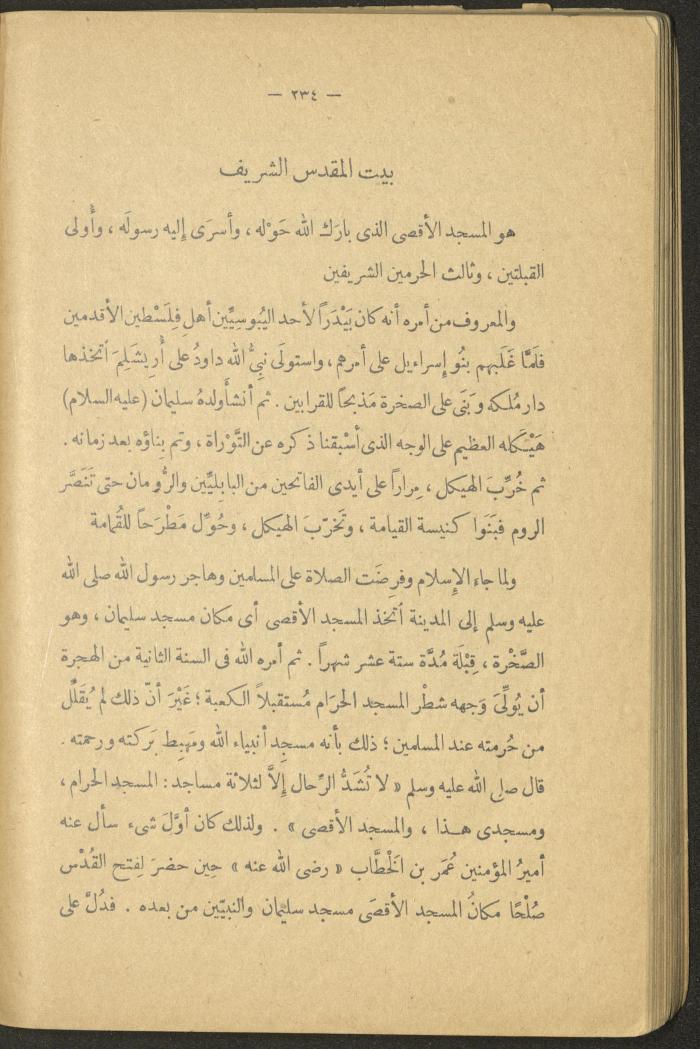 — ٢٣٤ —
بيت المقدس الشريف
هو المسجد الأقصى الذى بارَك الله حَوْله ، وأسرَى إليه رسولَه ، وأُولى
القبلتين ، وثالث الحرمين الشريفين
والمعروف من أمره أنه كان بَيْدَراً لأحد اليُبوسِيِّين أهلِ فِلَسْطين الأقدمين
فلَمَّا غَلَبهم بنُو إسراءيل على أمرهم ، واستولَى نبيُّ الله داودُ على أُرِيشَلِمَ اتخذها
دار مُلكه وبَنَى على الصخرة مَذبحاً للقرابين . ثم أنشأ ولدهُ سليمان (عليه السلام)
هَيْكله العظيم على الوجه الذى أسْبقنا ذكره عن التَّوْراة ، وتم بِناؤه بعد زمانه .
ثم خُرِّبَ الهيكل ، مِراراً على أيدى الفاتحين من البابِليِّين والرُّومان حتى تَنَصَّر
الروم فبَنَوا كنيسة القيامة ، وتَخرّبَ الهيكل ، وحُوِّل مَطْرَحاً للقُمامة
ولما جاء الإِسلام وفرِضَت الصلاة على المسلمين وهاجر رسول الله صلى الله
عليه وسلم إلى المدينة اتخذ المسجد الأقصى أى مكان مسجد سليمان ، وهو
الصَّخْرة ، قِبْلَةَ مُدَّة ستة عشر شهراً . ثم أمره الله فى السنة الثانية من الهجرة
أن يُولِّىَ وَجهه شطْر المسجد الحرَام مُستقبلاً الكعبة ؛ غَيْرَ أنّ ذلك لم يُقَلِّل
من حُرمته عند المسلمين ؛ ذلك بأنه مسجد أنبياء الله ومَهبِط بَركته ورحمته .
قال صلى الله عليه وسلم « لا تُشَدُّ الرِّحال إلاَّ لثلاثة مساجد : المسجد الحرام ،
ومسجدى هـذا ، والمسجد الأقصى » . ولذلك كان أوَّلَ شىء سأل عنه
أميرُ المؤمنين عُمَر بن الخْطَّاب « رضى الله عنه » حِين حضرَ لِفتح القُدْس
صُلْحًا مكانُ المسجد الأقصَى مسجد سليمان والنبيّين من بعده . فدُلَّ على